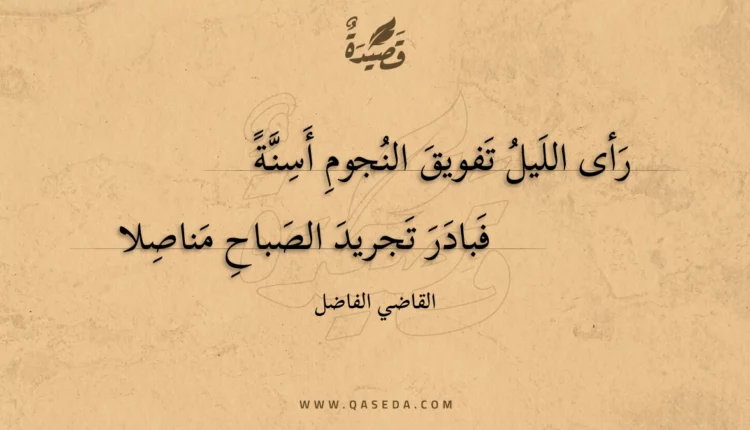 قَصِيْدَةٌ
رَأى اللَيلُ تَفويقَ النُجومِ أَسِنَّةً
فَبادَرَ تَجريدَ الصَباحِ مَناصِلا
القاضي الفاضل
WWW.QASEDA.COM